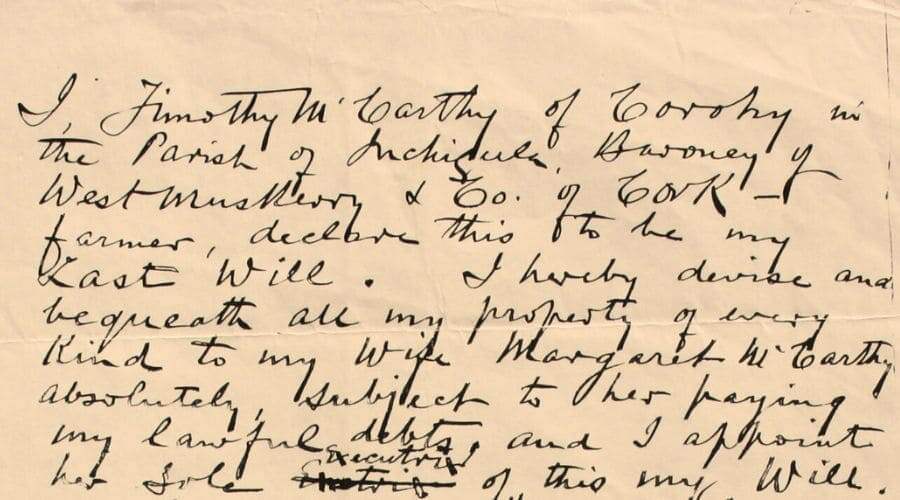 I, Timothy McCarthy of Corohy in
the Parish of Inchigeela, Baroney of
West Muskerry & Co. of Cork –
farmer, declare this to be my
Last Will. I hereby devise and
bequeath all my property of every
Kind to my Wife Margaret McCarthy
absolutely, subject to her paying
my lawful debts, and I appoint
executrix
her sole of this my Will.